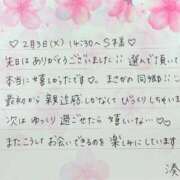 ♡2月3日(火) 14:30〜S様♡
先日はありがとうございました!! 選んで頂いて
本当に嬉しかったです。まさかの同郷!!
最初から親近感しかなくてびっくりしちゃいました
次はゆっくり過ごせたら嬉しいな…♡
またこうしてお会いできるのを楽しみにしています
湊